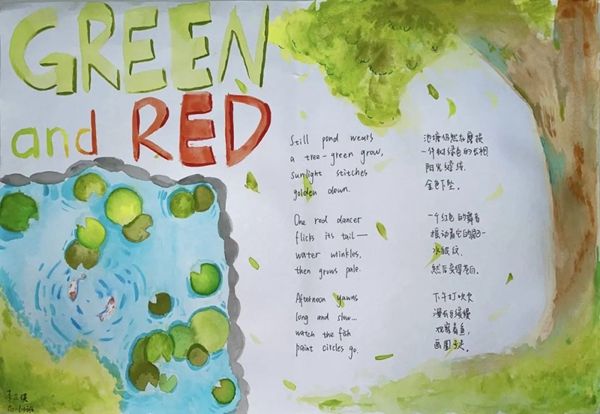 GREEN
and RED
Still pond wears
a tree-green grow,
sunlight stitches
golden down.
One red dancer
flicks its tail—
water wrinkles,
then grows pale.
Afternoon yawns
long and slow...
watch the fish
paint circles go.
池塘仍然在磨损
一件树绿色的长袍
阳光缝纫
金色下坠。
一个红色的舞者
摆动着它的尾巴—
水皱纹,
然后变得苍白。
下午打哈欠
漫长且缓慢
观看着鱼
画圈走。